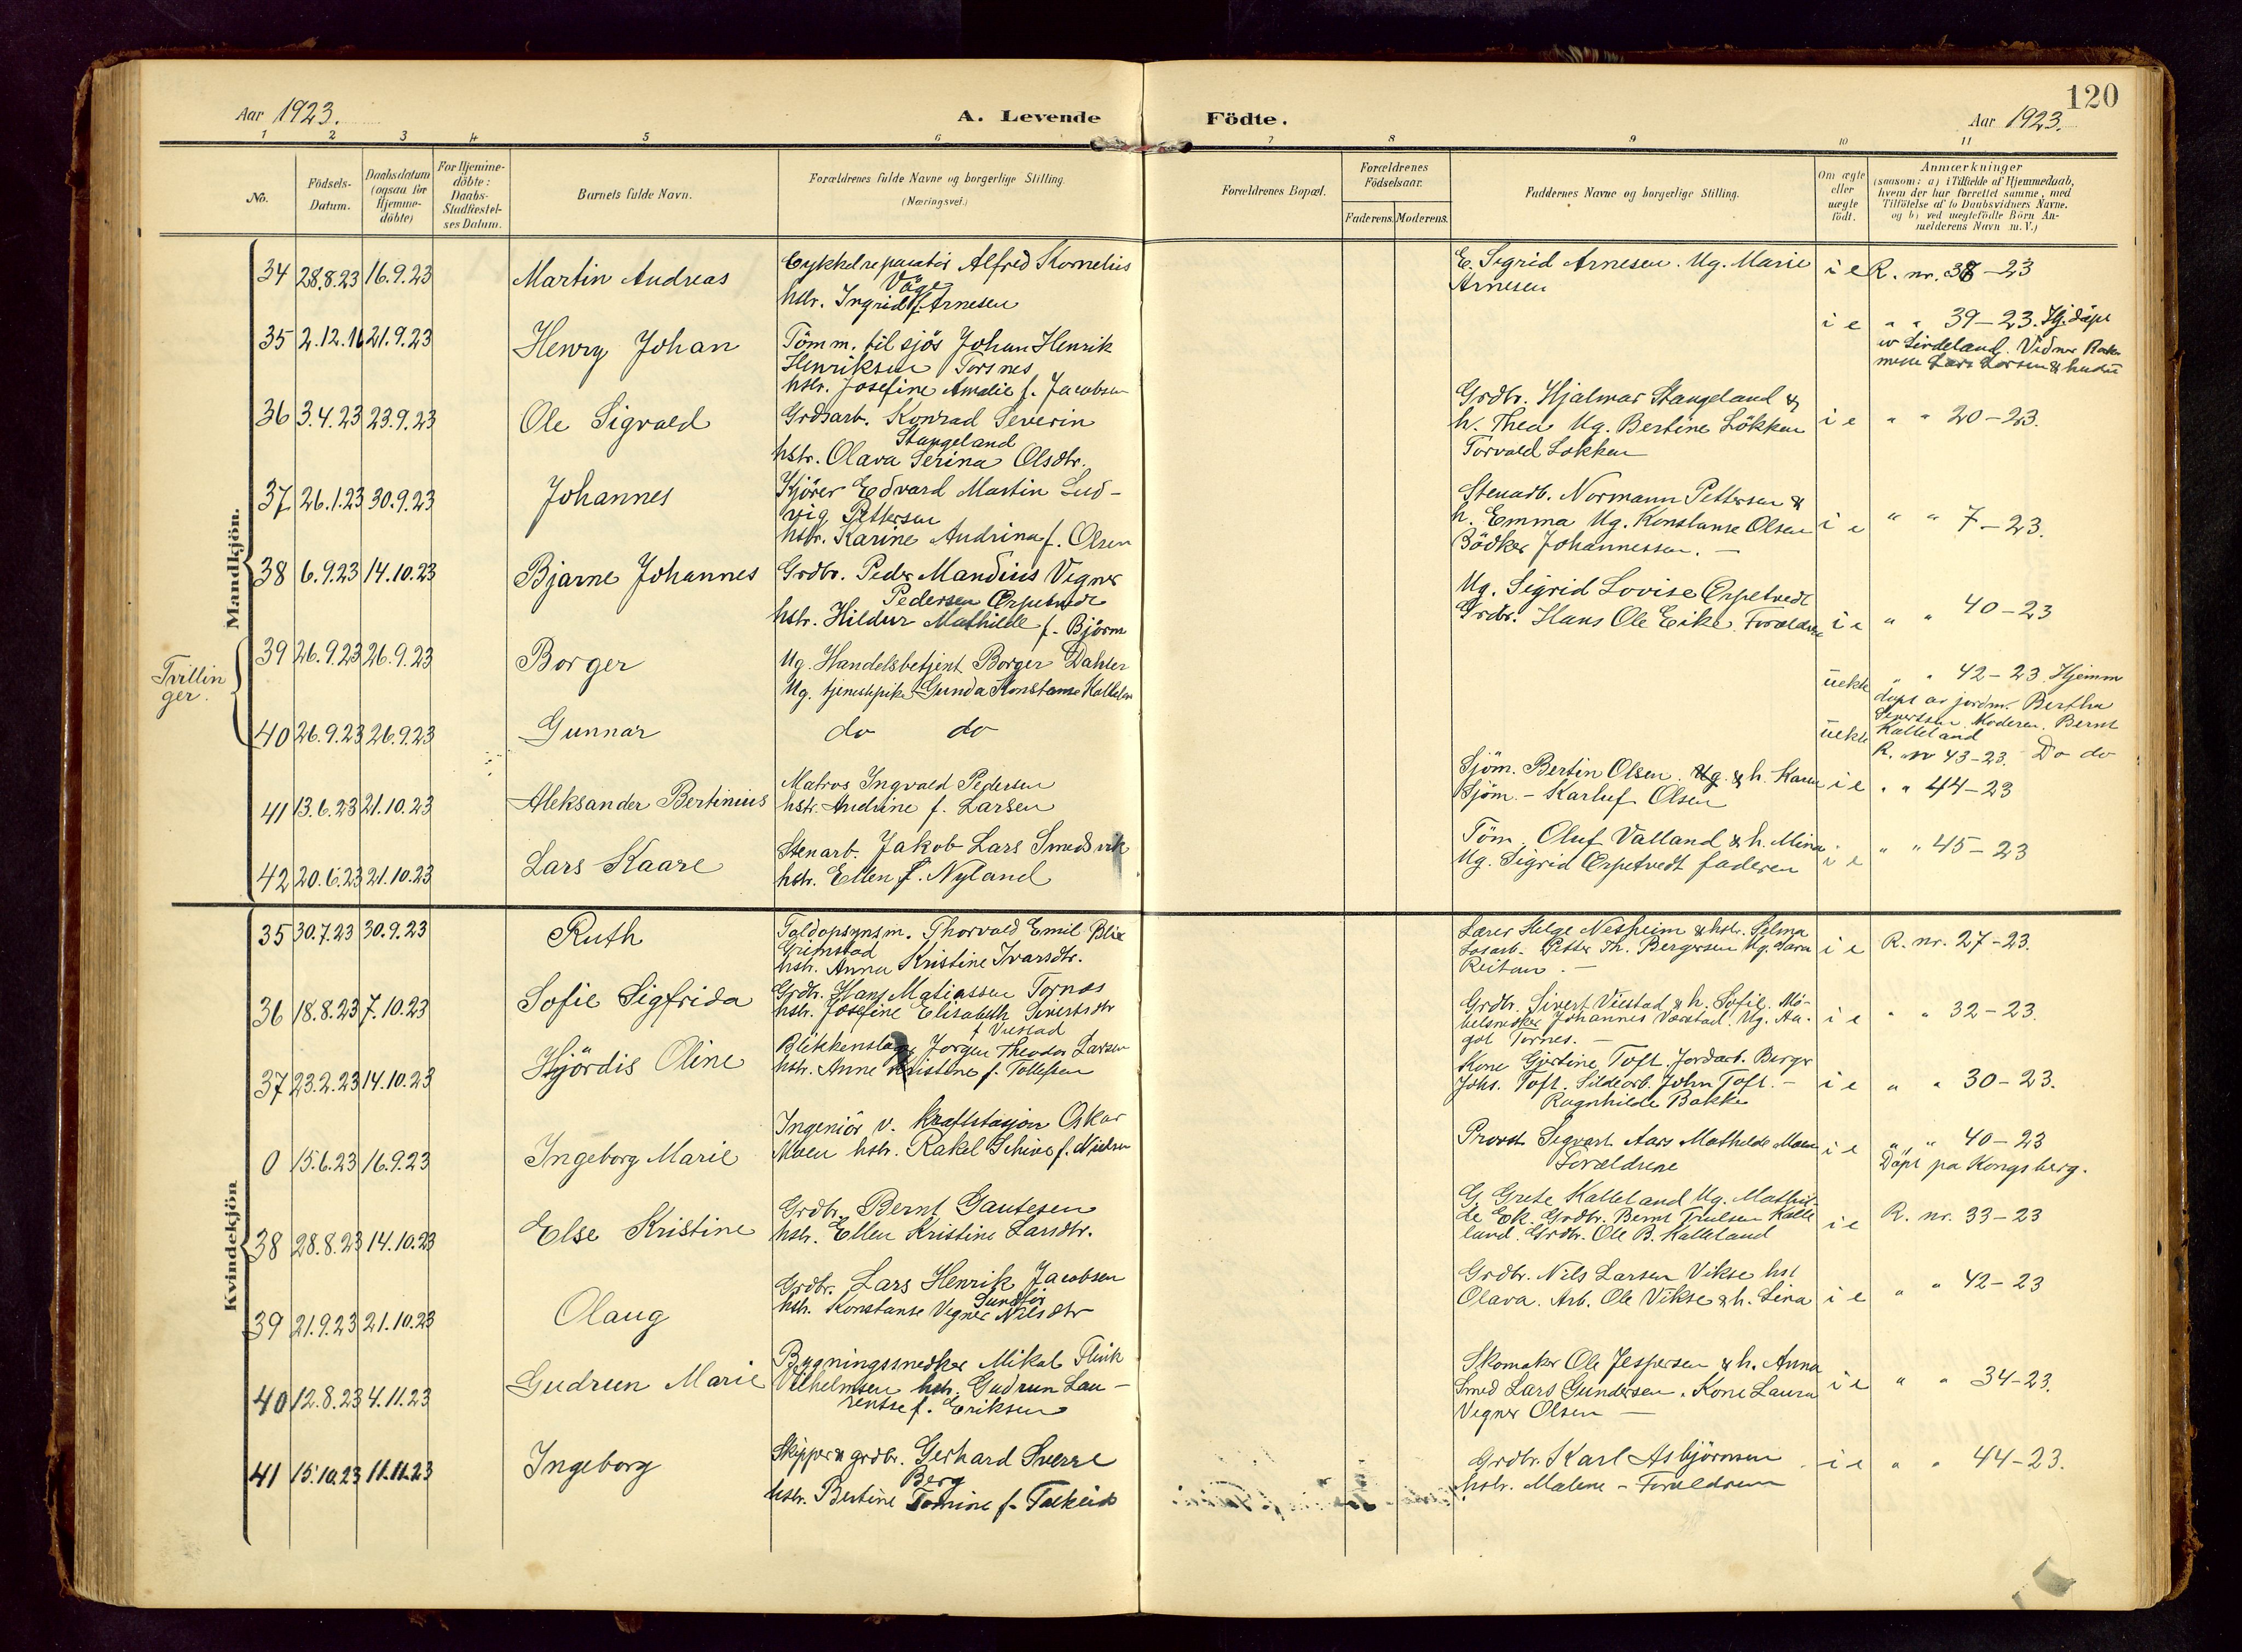 120
Aar 1923.
A. Levende Födte.
Aar 1923.
1 2 3 4 5 6 7 8 9 10 11
No.
Födsels-
Datum.
Daabsdatum
(ogsaa for
Hjemme-
döbte)
For Hjemme-
döbte:
Daabs-
Stadfæstel-
ses Datum.
Barnets fulde Navn.
Forældrenes fulde Navne og borgerlige Stilling.
(Næringsvei.)
Forældrenes Bopæl.
Forældrenes
Födselsaar.
Faderens. Moderens.
Faddernes Navne og borgerlige Stilling.
Om ægte
eller
uægte
födt.
Anmærkninger
(saasom: a) i Tilfælde af Hjemmedaab,
hvem der har forrettet samme, med
Tilföielse af to Daabsvidners Navne.
og b) ved uægtefödte Börn An-
melderens Navn m. V.)
Mandkjön.
34 28.8.23 16.9.23
Martin Andreas
Cykkelreparatör Alfred Kornelius
Våge
hstr. Ingrid f. Arnesen
E. Sigrid Arnesen. Ug. Marie
Arnesen
i e
R. nr. 38-23
35 2.12.16 21.9.23
Henry Johan
Tömm. til sjös Johan Henrik
Henriksen Torsnes
hstr. Josefine Amalie f. Jacobsen
i e
" " 39-23. Hj. döpt
av Lindeland. Vidner
Lars Larsen &
36 3.4.23 23.9.23
Ole Sigvald
Grdsarb. Konrad Severin
Stangeland
hstr. Olava Serina Olsdtr.
Grdbr. Hjalmar Stangeland &
h. Thea Ug. Bertine Lökken
Torvald Lokken
i e
" " 20-23.
37 26.1.23 30.9.23
Johannes
Kjörer Edvard Martin Lud-
vig Pettersen
hstr. Karine Andrina f. Olsen
Stenarb. Normann Pettersen &
h. Emma Ug. Konstanse Olsen
Bödker Johannessen. —
i e
" " 7-23.
38 6.9.23 14.10.23
Bjarne Johannes
Grdbr. Peder Mandius Vegner
Pedersen Erpetvedt
hstr. Hildur Mathilde f. Björn
Ug. Sigrid Lovise Erpetvedt
Grdbr. Hans Ole Eike. Forældrene
i e
" " 40-23
Tvillin
ger.
39 26.9.23 26.9.23
Borger
Ug. Handelsbetjent Borger Dahler
Ug. tjenestepike Gunda Konstanse Kalleland
uekte
" " 42-23. Hjemm
döpt av jordm. Bertha
Sivertsen. Moderen. Bernt
Kalleland
40 26.9.23 26.9.23
Gunnar
do do
uekte
R. nr 43-23. Do do
41 13.6.23 21.10.23
Aleksander Bertinius
Matros Ingvald Pedersen
hstr. Andrine f. Larsen
Sjöm. Bertin Olsen. & h. Karen
Sjöm. - Karluf Olsen
i e
" " 44-23
42 20.6.23 21.10.23
Lars Kaare
Stenarb. Jakob Lars Smedsvik
hstr. Ellen f. Nyland
Töm. Oluf Valland & h. Mina
Ug. Sigrid Erpetvedt faderen
i e
" " 45-23
Kvindekjön
35 30.7.23 30.9.23
Ruth
Toldopsynsm. Thorvald Emil Blix
Grimstad
hstr. Anna Kristine Ivarsdtr.
Lærer Helge Nesheim & hstr. Selma
Losarb. Petter Th. Bergersen Ug. Sara
Reitan. —
i e
R. nr. 27-23.
36 18.8.23 7.10.23
Sofie Sigfrida
Grdbr. Hans Matiassen Tornes
hstr. Josefine Elisabeth Sivertsdtr
f Viestad
Grdbr. Sivert Viestad & h. Sofie. Mö-
belsnedker Johannes Værstad. Ug. Aa-
got Tornes. —
i e
" " 32-23.
37 23.2.23 14.10.23
Hjördis Oline
Blikkenslager Jörgen Theodor Larsen
hstr. Anne Kristine f. Tollefsen
Kone Gjertine Toft. Jordarb. Berge
Johs. Toft. Sildearb. John Toft. —
Ragnhilde Bakke
i e
" " 30-23.
0 15.6.23 16.9.23
Ingeborg Marie
Ingeniör v. kraftstasjon Oskar
Moen hstr. Rakel Schive f. Nielsen
Provst Sigvart Aars Mathilde Moen
Forældrene
i e
" " 40-23
Döpt på Kongsberg.
38 28.8.23 14.10.23
Else Kristine
Grdbr. Bernt Gautesen
hstr. Ellen Kristine Larsdtr.
G. Grete Kalleland Ug. Mathil-
de Ek. Grdbr. Bernt Truelsen Kalle
land. Grdbr. Ole B. Kalleland
i e
R. nr. 33-23
39 21.9.23 21.10.23
Olaug
Grdbr. Lars Henrik Jacobsen
Sundför
hstr. Konstanse Vegner Nilsdtr
Grdbr. Nils Larsen Vikse hst
Olava. Arb. Ole Vikse & h. Lina
i e
" " 42-23
40 12.8.23 4.11.23
Gudrun Marie
Bygningssnedker Mikal Flink
Vilhelmsen hstr. Gudrun Lau-
rentse f. Eriksen
Skomaker Ole Jespersen & h. Anna
Smed Lars Gundersen. Kone Laura
Vegner Olsen —
i e
" " 34-23.
41 15.10.23 11.11.23
Ingeborg
Skipper & grdbr. Gerhard Sverre
Berg
hstr. Bertine Tomine f. Falkeid
Grdbr. Karl Asbjörnsen
hstr. Malene - Forældrene
i e
" " 44-23.